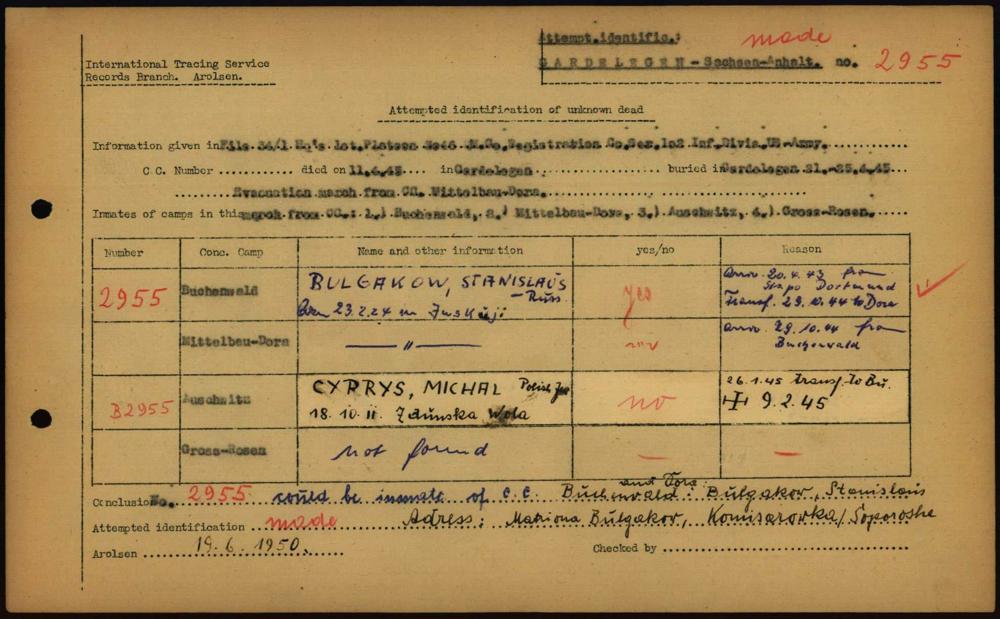 Attempt.identific.: made
International Tracing Service
GARDELEGEN - Sachsen-Anhalt. no. 2955
Records Branch. Arolsen.
Attempted identification of unknown dead
Information given in File 34/1 Hq's 1st. Platoon No 46 Registration Co. 102 Inf. Divis. US-Army.
C.C. Number died on 11.4.45 in Gardelegen buried in Gardelegen 21.-25.4.45
Evacuation march from CC. Mittelbau-Dora.
Inmates of camps in this march from CC.: 1.) Buchenwald, 2.) Mittelbau-Dora, 3.) Auschwitz, 4.) Gross-Rosen.
Number Conc. Camp Name and other information yes/no Reason
2955 Buchenwald BULGAKOW, STANISLAUS yes arriv. 20.4.43 from
- Russ Stapo Dortmund
born 23.2.24 in transf. 29.10.44 to Dora
Mittelbau-Dora — " — arriv. 29.10.44 from
Buchenwald
B2955 Auschwitz CYPRYS, MICHAL Polish Jew no 26.1.45 transf. to Bu.
18.10.11 Zdunska Wola 9.2.45
Gross-Rosen not found — —
Conclusion No. 2955 could be inmate of C.C. Buchenwald and Dora: Bulgakov, Stanislaus
Attempted identification made Adress: Matriona Bulgakov, Komisarowka/Soporoshe
Arolsen 19.6.1950. Checked by